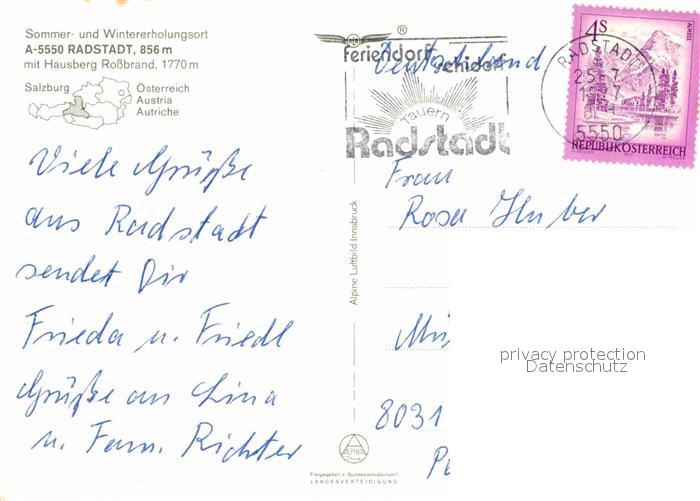 Sommer- und Wintererholungsort
A-5550 RADSTADT, 856 m
mit Hausberg Roßbrand, 1770 m
Salzburg
Österreich
Austria
Autriche
Viele Grüße
aus Radstadt
sendet Dir
Frieda u. Friedl
Grüße an Lina
u. Fam. Richter
Alpine Luftbild Innsbruck
ALPINE
Freigegeben v. Bundesministerium f.
LANDESVERTEIDIGUNG
®
feriendorf
schidorf
Tauern
Radstadt
Deutschland
RADSTADT
5550
4S
ALMSEE
REPUBLIK ÖSTERREICH
Frau
Rosa Huber
8031
privacy protection
Datenschutz